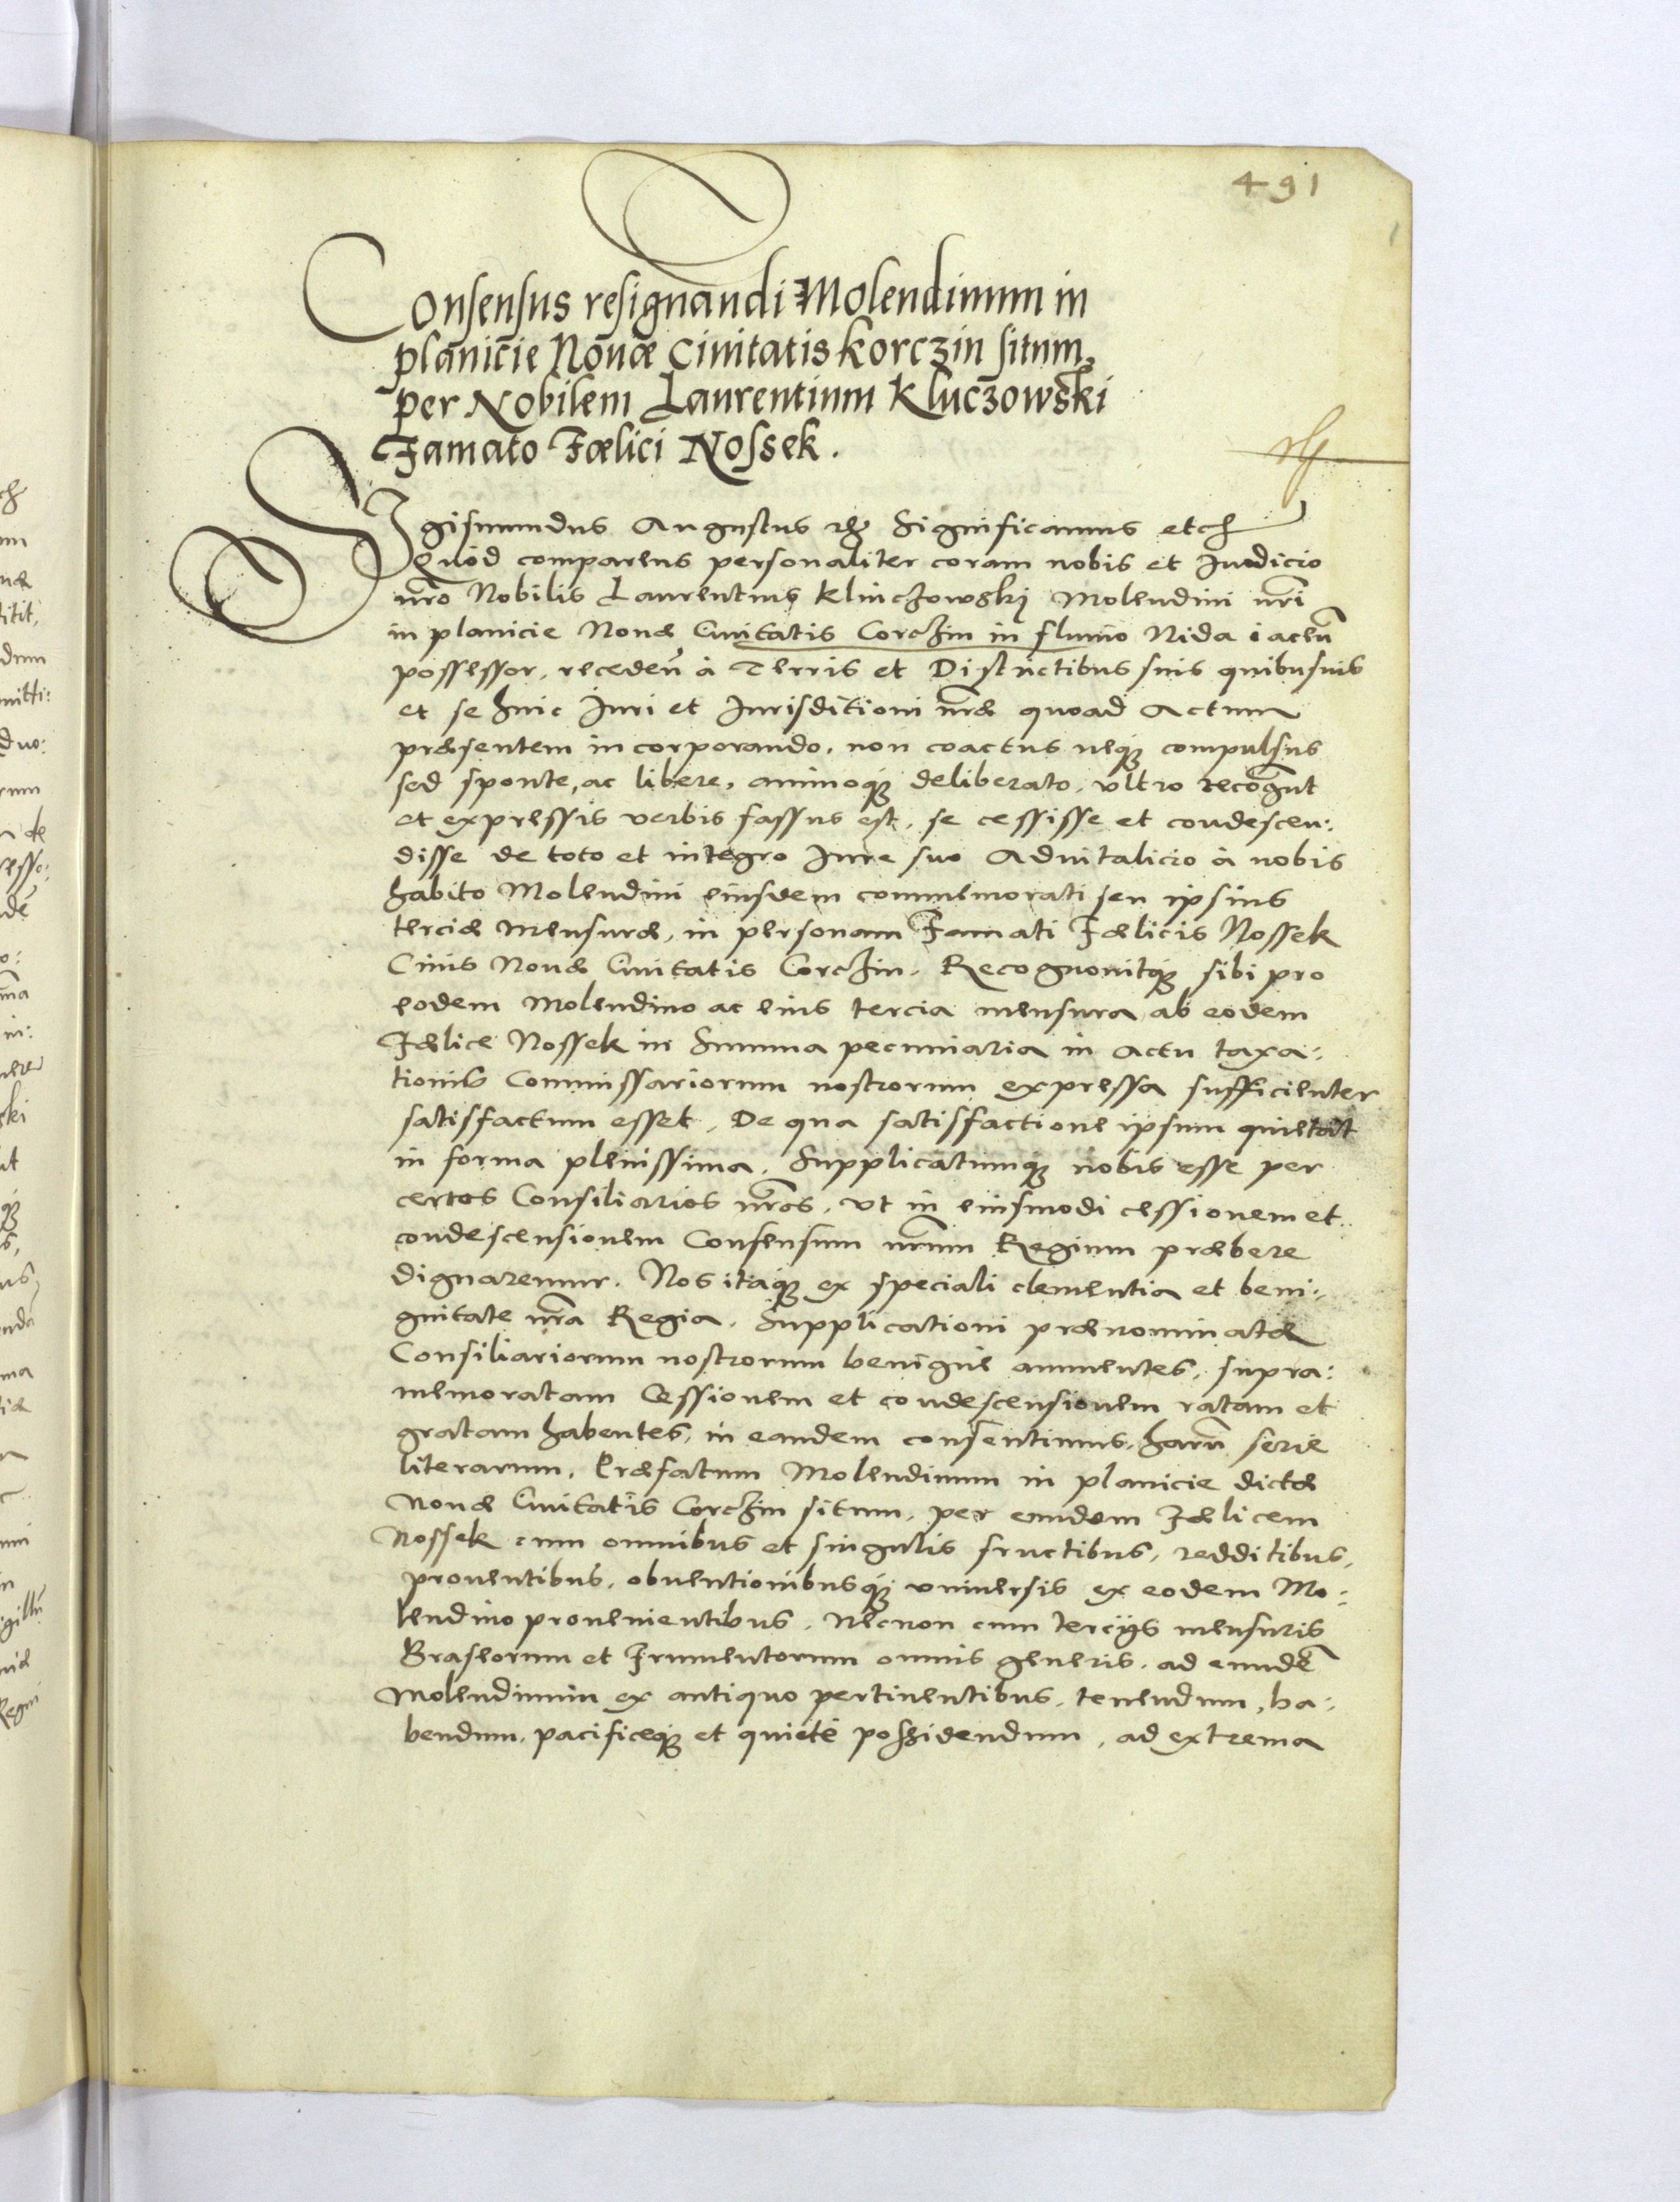 491
Consensus resignandi Molendinum in
planicie Nouæ Ciuitatis Korczin situm,
per Nobilem Laurentium Kluczowski
Famato Fœlici Nossek.
Sigismundus Augustus Significamus
Quod comparens personaliter coram nobis et Iudicio
nr̃o Nobilis Laurentius Kluczowskj Molendini nr̃i
in planicie Nouæ Ciuitatis Corczin in fluuio Nida iaceñ
possessor, recedeñ à Terris et Districtibus suis quibusuis
et se huic Iuri et Iurisditioni nr̃æ quoad Actum
præsentem incorporando, non coactus neq́ compulsus
sed sponte, ac libere, animoq́ deliberato, vltro recog̃nt
et expressis verbis fassus est, se cessisse et condescen:
disse de toto et integro Iure suo Aduitalicio à nobis
habito Molendini eiusdem commemorati seu ipsius
terciæ mensuræ, in personam Famati Fælicis Nossek
Ciuis Nouæ Ciuitatis Corczin. Recognouitq́ sibi pro
eodem Molendino ac eius tercia mensura ab eodem
Fælice Nossek in Summa pecuniaria in actu taxa:
tionis Commissariorum nostrorum expressa sufficienter
satisfactum esset, De qua satisfactione ipsum quietat
in forma plenissima. Supplicatumq́ nobis esse per
certos Consiliarios nr̃os, vt in eiusmodi cessionem et
condescensionem Consensum nr̃um Regium præbere
dignaremur. Nos itaq́ ex speciali clementia et beni:
gnitate nr̃a Regia, Supplicationi prænominatæ
Consiliariorum nostrorum benigne annuentes, supra:
memoratam Cessionem et condescensionem ratam et
gratam habentes, in eandem consentimus, harũ serie
literarum, Præfatum Molendinum in planicie dictæ
Nouæ Ciuitatis Corczin situm, per eundem Fælicem
Nossek cum omnibus et singulis fructibus, redditibus,
prouentibus, obuentionibusq́ vniuersis ex eodem Mo:
lendino prouenientibus, Necnon cum tercijs mensuris
Braseorum et Frumentorum omnis generis, ad eundẽ
Molendinum ex antiquo pertinentibus, tenendum, ha:
bendum, pacificeq́ et quietè possidendum, ad extrema